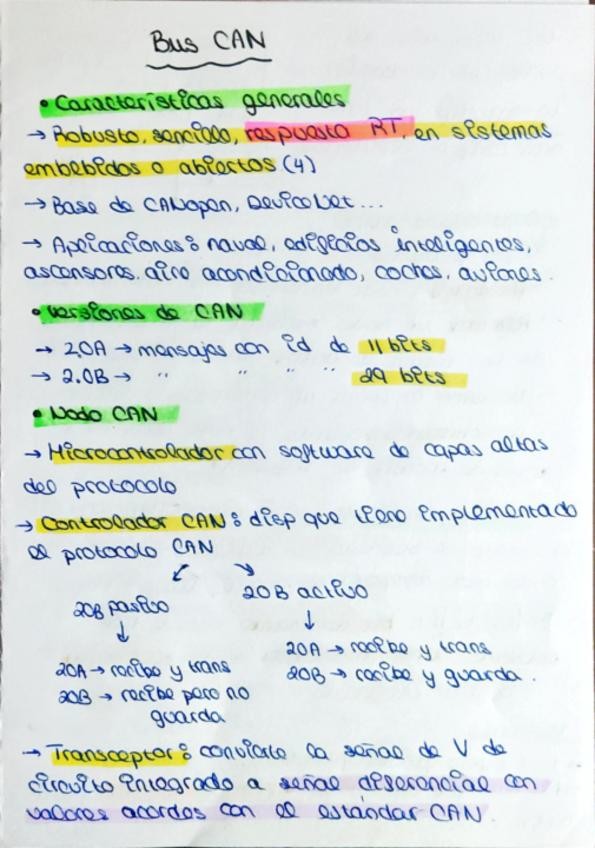 Bus CAN
• Características generales
→ Robusto, sencillo, respuesta RT, en sistemas
embebidos o abiertos (4)
→ Base de CANopen, DeviceNet...
→ Aplicaciones: naval, edificios inteligentes,
ascensores, aire acondicionado, coches, aviones.
• Versiones de CAN
→ 2.0A → mensajes con id de 11 bits
→ 2.0B → " " " " 29 bits
• Nodo CAN
→ Microcontrolador con software de capas altas
del protocolo
→ Controlador CAN: disp que tiene implementado
el protocolo CAN
↙ ↘
20B pasivo 20B activo
↓ ↓
20A → recibe y trans 20A → recibe y trans
20B → recibe pero no 20B → recibe y guarda.
guarda
→ Transceptor: convierte la señal de V de
circuito integrado a señal diferencial con
valores acordes con el estándar CAN.